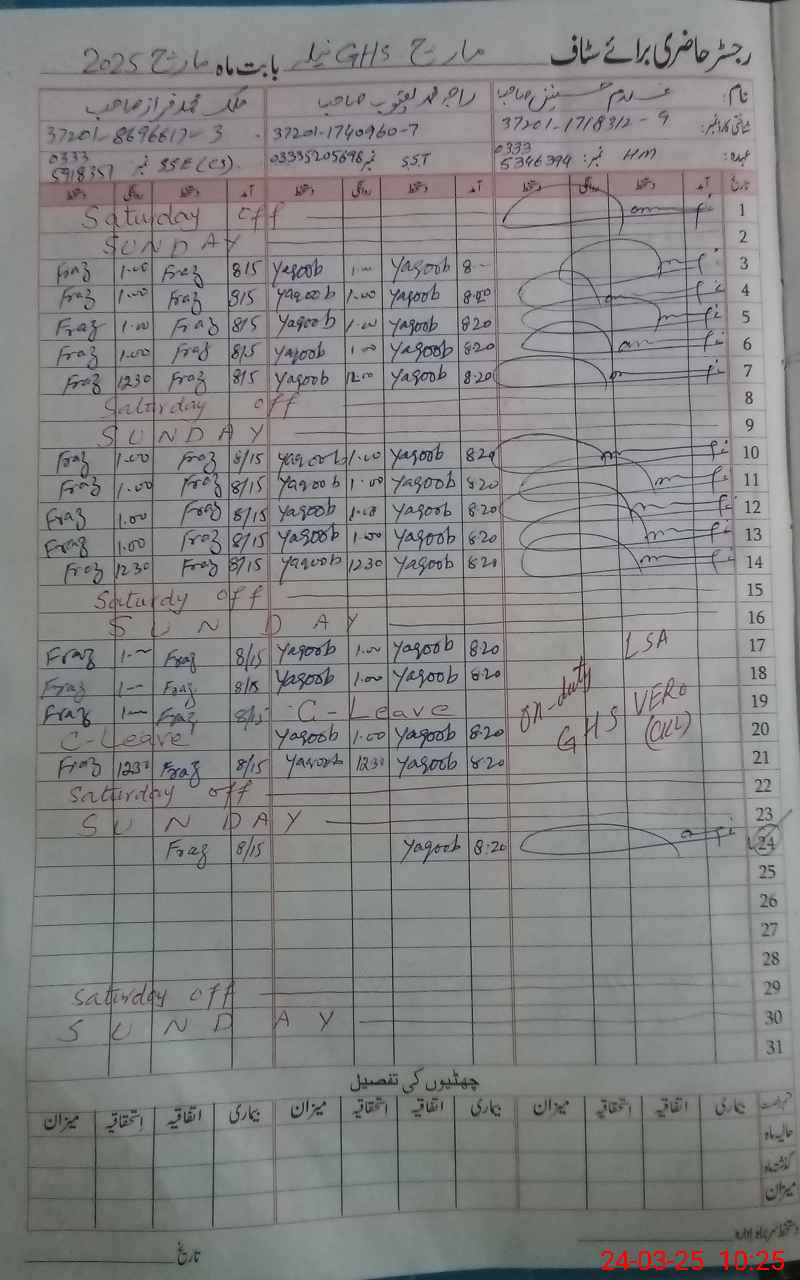 رجسٹر حاضری برائے سٹاف GHS بابت ماہ مارچ 2025
نام: غلام حسنین صاحب راجہ محمد یعقوب صاحب ملک محمد فراز صاحب
شناختی کارڈ نمبر: 37201-1718312-9 37201-1740960-7 37201-8696617-3
عہدہ: HM نمبر: 0333 5346394 SST نمبر 03335205698 SSE(CS). نمبر 0333 5918357
تاریخ آمد دستخط روانگی دستخط آمد دستخط روانگی دستخط آمد دستخط روانگی دستخط
Saturday off 1
SUNDAY 2
Fraz 1.00 Fraz 8/15 Yaqoob 1.00 Yaqoob 8 3
Fraz 1.00 Fraz 8/15 Yaqoob 1.00 Yaqoob 8.20 4
Fraz 1.00 Fraz 8/15 Yaqoob 1.00 Yaqoob 8.20 5
Fraz 1.00 Fraz 8/15 Yaqoob 1.00 Yaqoob 8.20 6
Fraz 1230 Fraz 8/15 Yaqoob 1200 Yaqoob 8.20 7
Saturday off 8
SUNDAY 9
Fraz 1.00 Fraz 8/15 Yaqoob 1.00 Yaqoob 8.20 10
Fraz 1.00 Fraz 8/15 Yaqoob 1.00 Yaqoob 8.20 11
Fraz 1.00 Fraz 8/15 Yaqoob 1.00 Yaqoob 8.20 12
Fraz 1.00 Fraz 8/15 Yaqoob 1.00 Yaqoob 8.20 13
Fraz 1230 Fraz 8/15 Yaqoob 1230 Yaqoob 8.20 14
Saturdy off 15
SUNDAY 16
Fraz 1.00 Fraz 8/15 Yaqoob 1.00 Yaqoob 8.20 LSA 17
Fraz 1.00 Fraz 8/15 Yaqoob 1.00 Yaqoob 8.20 on-duty 18
Fraz 1.00 Fraz 8/15 C-Leave GHS VERO 19
C-Leave Yaqoob 1.00 Yaqoob 8.20 (CKL) 20
Fraz 1230 Fraz 8/15 Yaqoob 1230 Yaqoob 8.20 21
Saturday off 22
SUNDAY 23
Fraz 8/15 Yaqoob 8.20 24
25
26
27
28
Saturday off 29
SUNDAY 30
31
چھٹیوں کی تفصیل
بیماری اتفاقیہ استحقاقیہ میزان بیماری اتفاقیہ استحقاقیہ میزان بیماری اتفاقیہ استحقاقیہ میزان
حالیہ ماہ
گذشتہ ماہ
میزان
دستخط سربراہ ادارہ
تاریخ
24-03-25 10:25